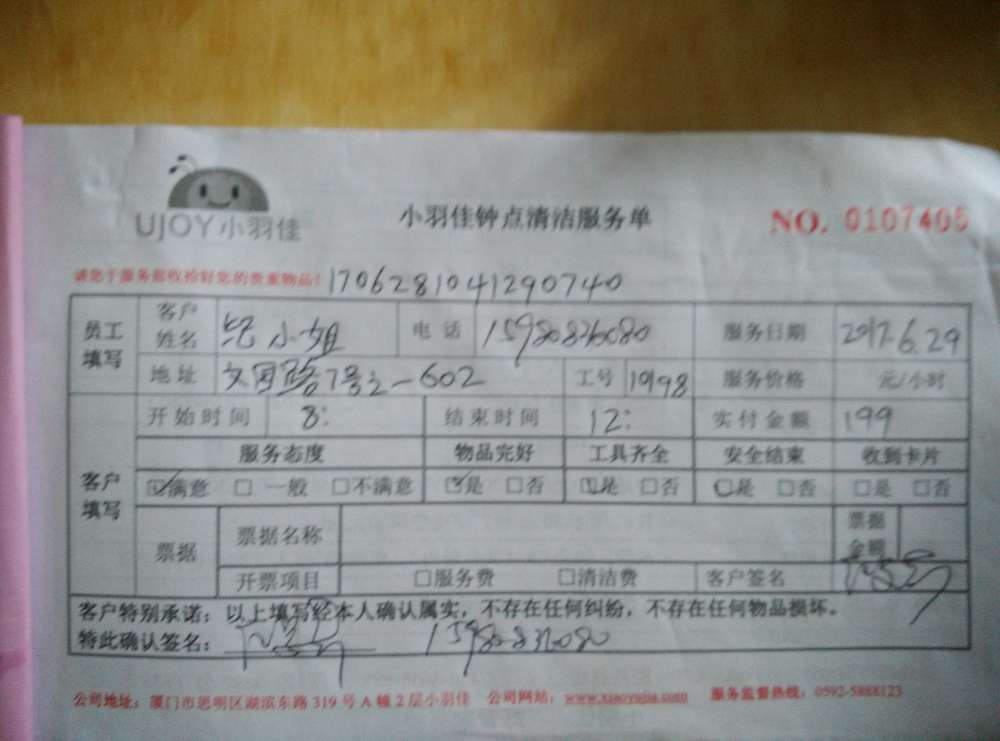 UJOY小羽佳
小羽佳钟点清洁服务单
NO. 0107406
请您于服务前收拾好您的贵重物品! 1706281041290740
员工填写 客户姓名 纪小姐 电话 15980826080 服务日期 2017.6.29
地址 文园路7号之一602 工号 19198 服务价格 元/小时
客户填写 开始时间 8: 结束时间 12: 实付金额 199
服务态度 物品完好 工具齐全 安全结束 收到卡片
☑满意 □一般 □不满意 ☑是 □否 ☑是 □否 ☑是 □否 □是 □否
票据 票据名称 票据金额
开票项目 □服务费 □清洁费 客户签名
客户特别承诺:以上填写经本人确认属实,不存在任何纠纷,不存在任何物品损坏。
特此确认签名: 15980826080
公司地址:厦门市思明区湖滨东路319号A幢2层小羽佳 公司网站:www.xiaoyujia.com 服务监督热线:0592-5888123